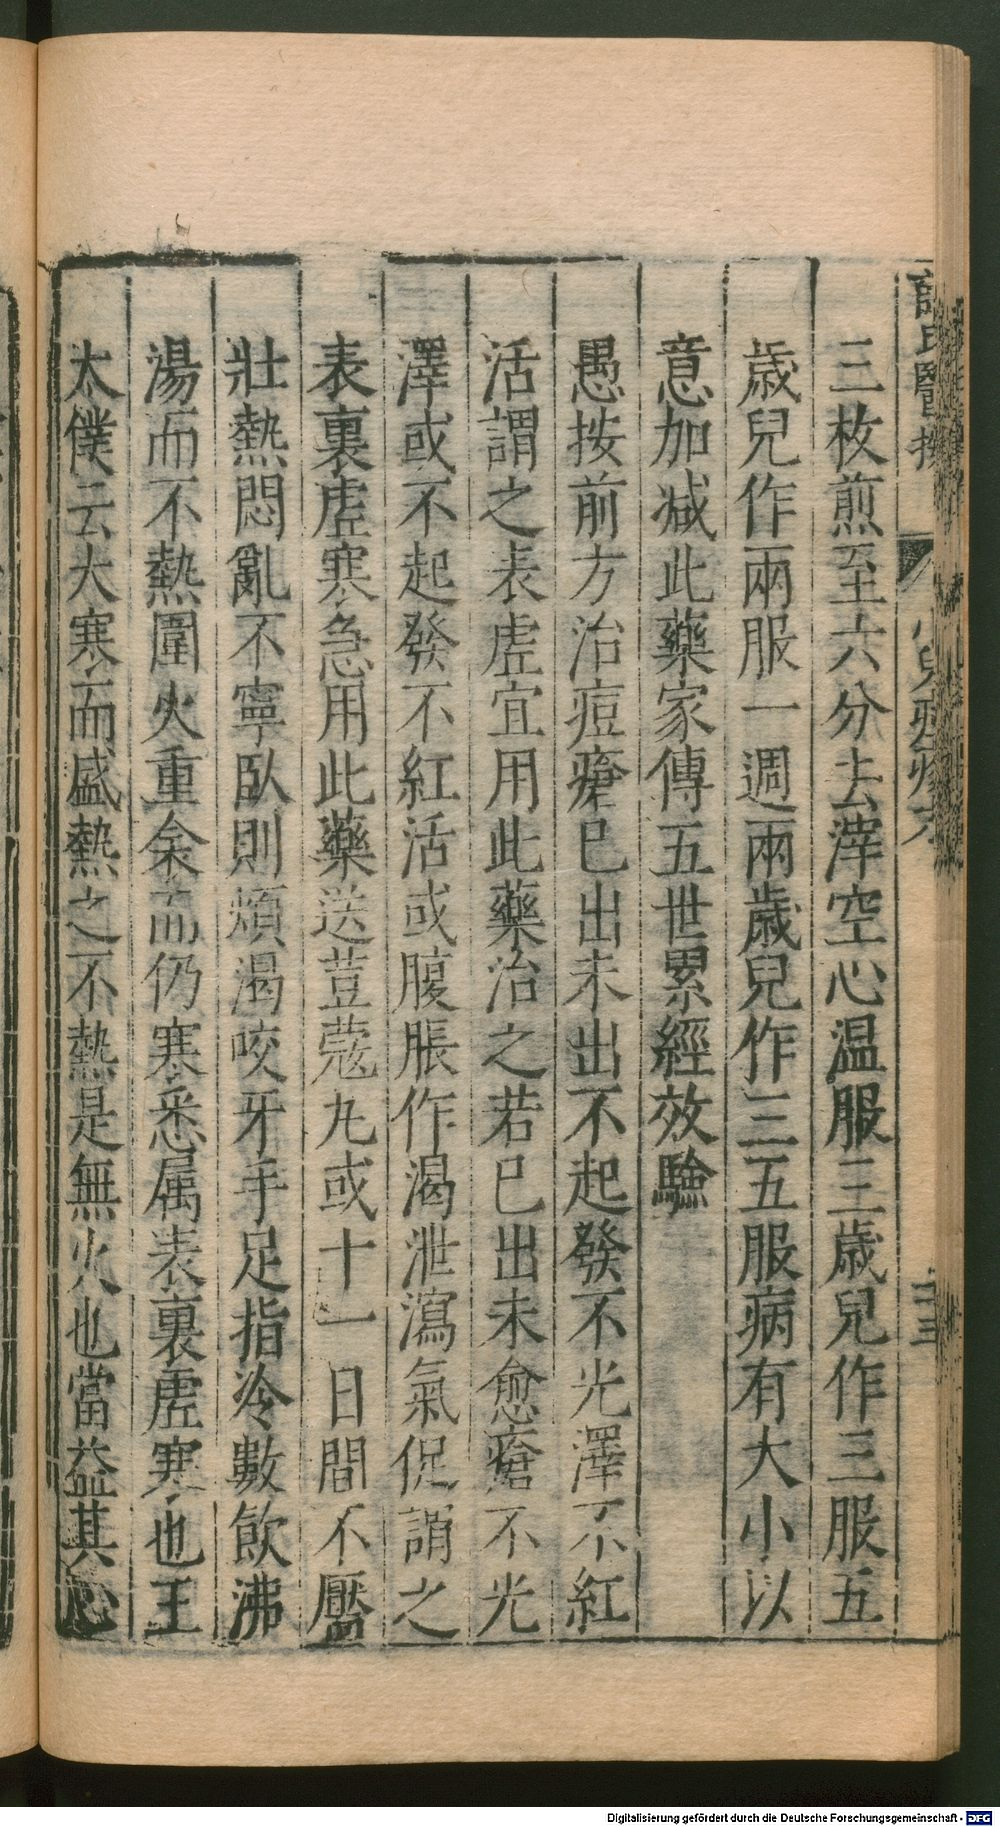 三枚煎至六分去滓空心温服三歳兒作三服五
歳兒作兩服一週兩歳兒作三五服病有大小以
意加减此藥家傳五世累經效驗
愚按前方治痘瘡已出未出不起發不光澤不紅
活謂之表虚宜用此藥治之若已出未愈瘡不光
澤或不起發不紅活或腹脹作渴泄瀉氣促謂之
表裏虚寒急用此藥送荳蔻丸或十一日間不靨
壯熱悶亂不寧卧則煩渴咬牙手足指冷數飲沸
湯而不熱圍火重衾而仍寒悉属表裏虚寒也王
太僕云大寒而盛熱之不熱是無火也當益其心
氏醫按
二三
Digitalisierung gefördert durch die Deutsche Forschungsgemeinschaft - DFG